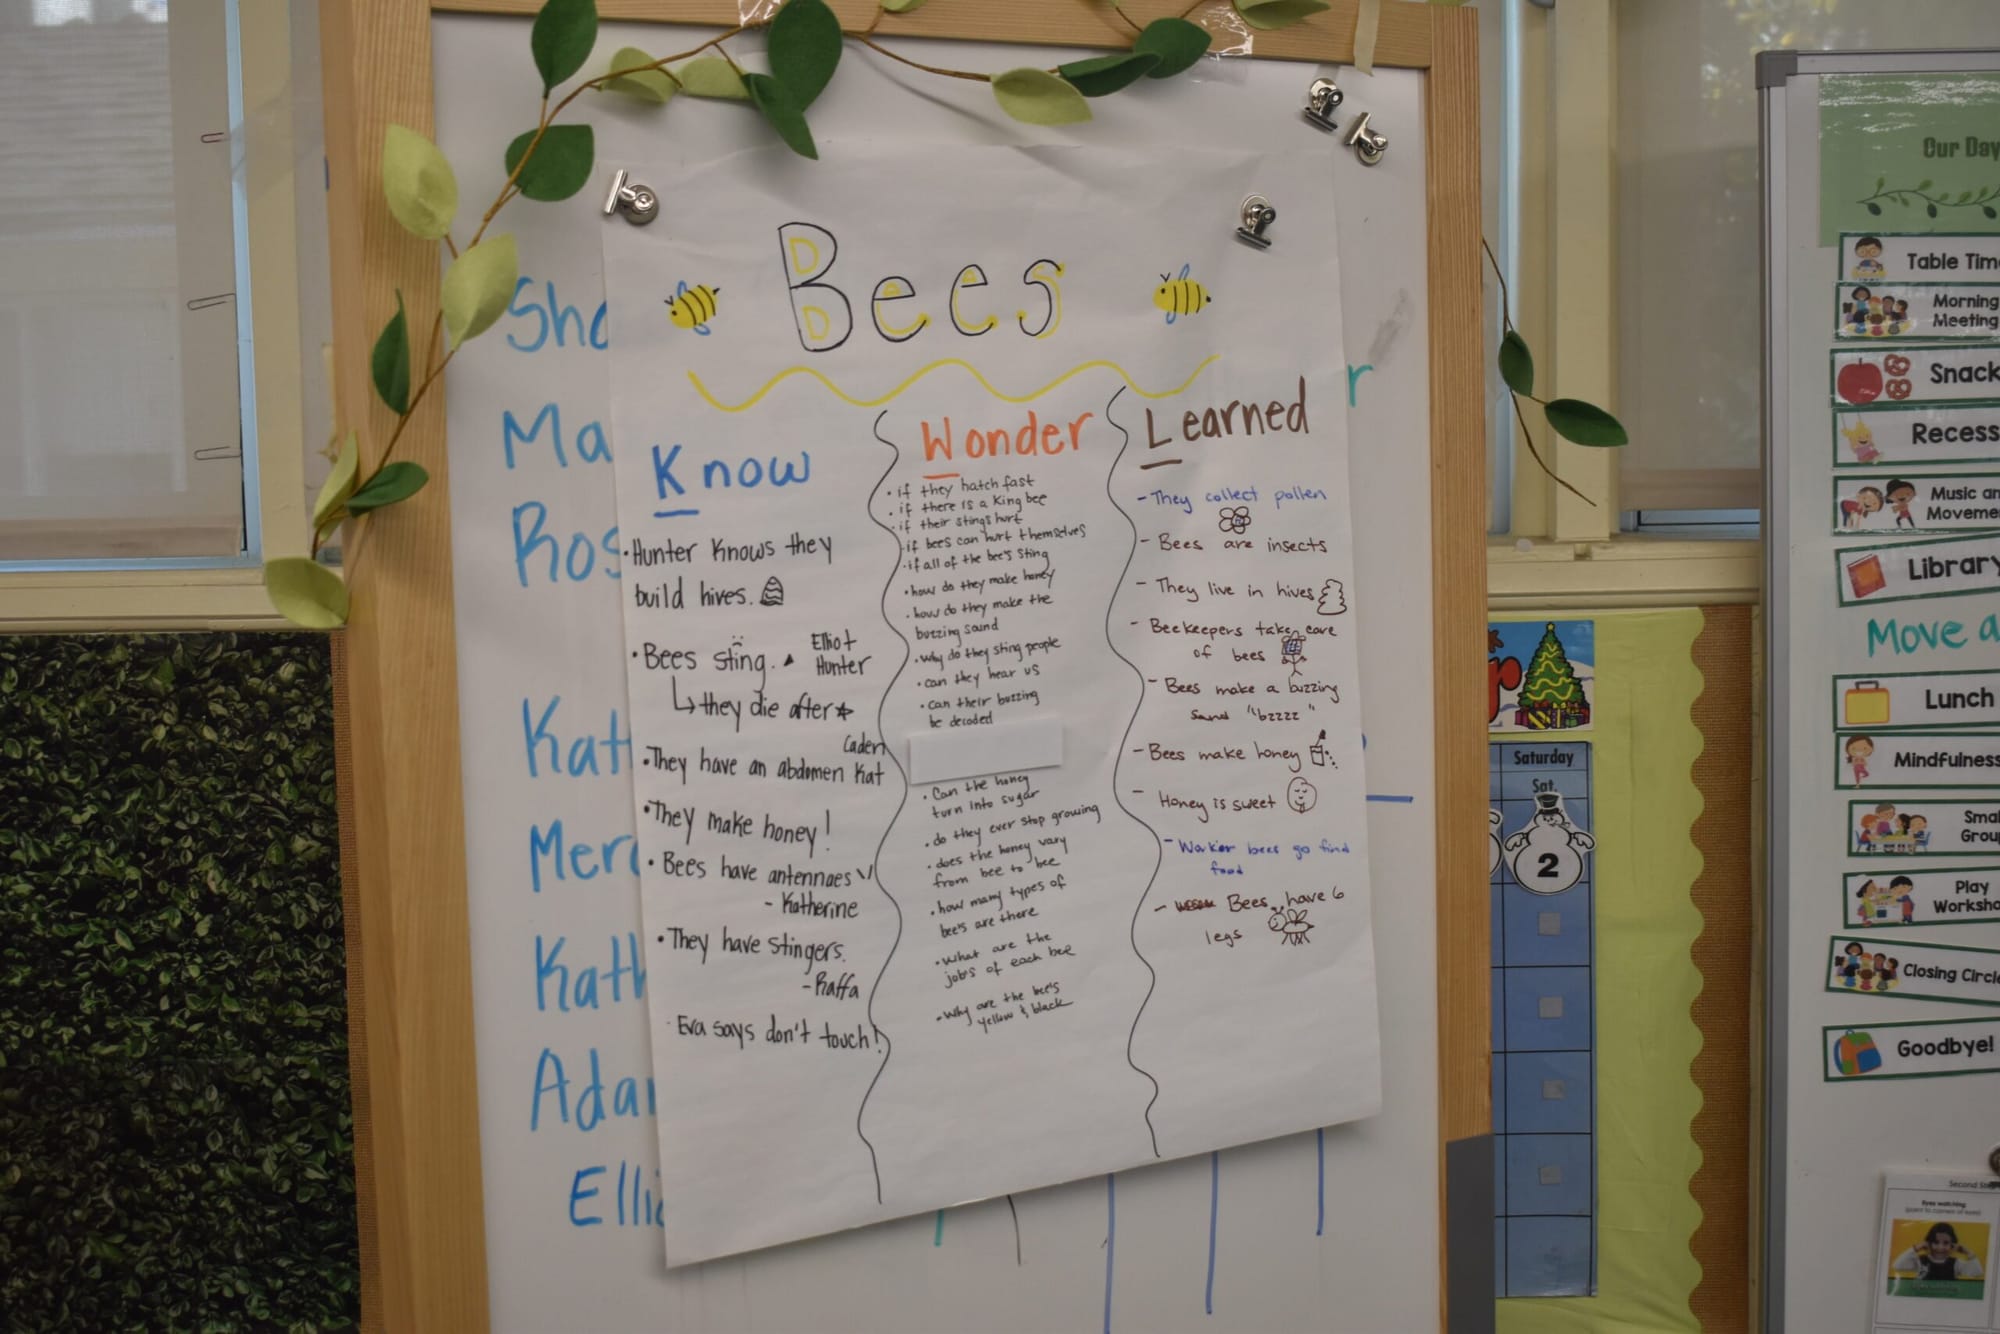 Bees
Know
• Hunter knows they
build hives.
• Bees sting.
Elliot
Hunter
they die after
Caden
• They have an abdomen Kat
• They make honey!
• Bees have antennaes
- Katherine
• They have stingers.
- Raffa
· Eva says don't touch!
Wonder
• if they hatch fast
• if there is a King bee
• if their stings hurt
• if bees can hurt themselves
• if all of the bee's sting
• how do they make honey
• how do they make the
buzzing sound
• why do they sting people
• can they hear us
• can their buzzing
be decoded
• Can the honey
turn into sugar
• do they ever stop growing
• does the honey vary
from bee to bee
• how many types of
bee's are there
• What are the
jobs of each bee
• Why are the bee's
yellow & black
Learned
- They collect pollen
- Bees are insects
- They live in hives
- Beekeepers take care
of bees
- Bees make a buzzing
sound "bzzzz"
- Bees make honey
- Honey is sweet
- Worker bees go find
food
- Bees have 6
legs
Sho
Ma
Ros
Kat
Merc
Kath
Adar
Elli
r
Saturday
Sat.
2
Our Day
Table Time
Morning
Meeting
Snack
Recess
Music an
Moveme
Library
Move a
Lunch
Mindfulness
Smal
Group
Play
Worksho
Closing Circle
Goodbye!
Second Step
Eyes watching